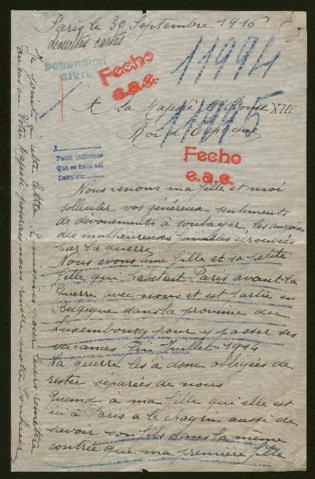 Paris le 30 Septembre 1916
POBLACION
CIVIL
Fecho
e.a.e.
11994
11995
A Sa Majesté Alphonse XIII
Roi d'Espagne
Fecho
e.a.e.
A
Pedir informes
Que se hizo así
Devolver
Nous venons ma fille et moi
solliciter, vos généreux sentiments
de dévouements à soulager, les
des malheureuses familles éprouvées
par la guerre.
Nous avons une fille et sa petite
fille qui habitait Paris avant la
Guerre avec nous et est partie en
Belgique dans la province du
Luxembourg pour y passer ses
vacances Juillet 1914
La guerre les à donc obligées de
rester separées de nous
Quand a ma fille qui elle est
ici à Paris a le chagrin aussi de
savoir son fils dans la même
contrée que ma première fille
Je joints a cette lettre pour leurs remettre
au cas ou Votre Majesté pourrais nous rendre notre bonheur